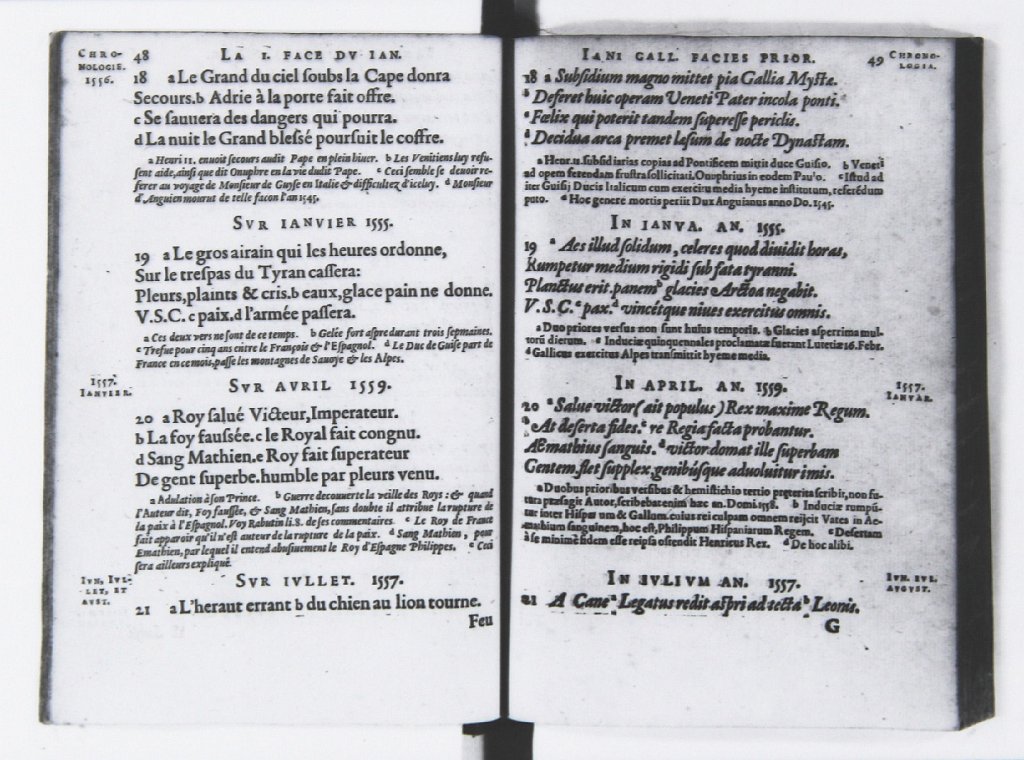 CHRO-
NOLOGIE.
1556.
48
LA I. FACE DV IAN.
18 a Le Grand du ciel soubs la Cape donra
Secours. b Adrie à la porte fait offre.
c Se sauuera des dangers qui pourra.
d La nuit le Grand blessé poursuit le coffre.
a Henri 11. enuoit secours audit Pape en plein hiuer. b Les Venitiens luy refu-
sent aide, ainsi que dit Onuphre en la vie dudit Pape. c Ceci semble se deuoir re-
ferer au voyage de Monsieur de Guyse en Italie & difficultez d'iceluy. d Monsieur
d'Anguien mourut de telle facon l'an 1545.
SVR IANVIER 1555.
19 a Le gros airain qui les heures ordonne,
Sur le trespas du Tyran cassera:
Pleurs, plaints & cris. b eaux, glace pain ne donne.
V.S.C. c paix. d l'armée passera.
a Ces deux vers ne sont de ce temps. b Gelée fort aspre durant trois sepmaines.
c Trefue pour cinq ans entre le François & l'Espagnol. d Le Duc de Guise part de
France en ce mois, passe les montagnes de Sauoye & les Alpes.
1557.
IANVIER.
SVR AVRIL 1559.
20 a Roy salué Victeur, Imperateur.
b La foy faussée. c le Royal fait congnu.
d Sang Mathien. e Roy fait superateur
De gent superbe. humble par pleurs venu.
a Adulation à son Prince. b Guerre decouuerte la veille des Roys : & quand
l'Auteur dit, Foy faussée, & Sang Mathien, sans doubte il attribue la rupture de
la paix à l'Espagnol. Voy Rabutin li.8. de ses commentaires. c Le Roy de France
fait apparoir qu'il n'est auteur de la rupture de la paix. d Sang Mathien, pour
Emathien, par lequel il entend abusiuement le Roy d'Espagne Philippes. e Ceci
sera ailleurs expliqué.
IVN, IVL-
LET, ET
AVST.
SVR IVLLET. 1557.
21 a L'heraut errant b du chien au lion tourne.
Feu
IANI GALL. FACIES PRIOR.
49
CHRONO-
LOGIA.
18 a Subsidium magno mittet pia Gallia Mystæ.
b Deferet huic operam Veneti Pater incola ponti.
c Fœlix qui poterit tandem superesse periclis.
d Decidua arca premet læsum de nocte Dynastam.
a Henr. 11. subsidiarias copias ad Pontificem mittit duce Guisio. b Veneti
ad opem ferendam frustra sollicitati. Onuphrius in eodem Paulo. c Istud ad
iter Guisij Ducis Italicum cum exercitu media hyeme institutum, referēdum
puto. d Hoc genere mortis periit Dux Anguianus anno Do. 1545.
IN IANVA. AN. 1555.
19 a Aes illud solidum, celeres quod diuidit horas,
Rumpetur medium rigidi sub fata tyranni.
Planctus erit. panem b glacies Arctoa negabit.
V.S.C. c pax. d vincétque niues exercitus omnis.
a Duo priores versus non sunt huius temporis. b Glacies asperrima mul-
torū dierum. c Induciæ quinquennales proclamatæ fuerant Lutetiæ 16. Febr.
d Gallicus exercitus Alpes transmittit hyeme media.
IN APRIL. AN. 1559.
1557.
IANVAR.
20 a Salue victor (ait populus) Rex maxime Regum.
b At deserta fides. c re Regia facta probantur.
Æmathius sanguis. d victor domat ille superbam
Gentem, flet supplex, genibúsque aduoluitur imis.
a Duobus prioribus versibus & hemistichio tertio præterita scribit, non fu-
tura præsagit Autor, scribebat enim hæc an. Domi. 1558. b Induciæ rumpū-
tur inter Hispanum & Gallum. cuius rei culpam omnem reijcit Vates in Ae-
mathium sanguinem, hoc est, Philippum Hispaniarum Regem. c Desertam
à se minimè fidem esse reipsa ostendit Henricus Rex. d De hoc alibi.
IN IVLIVM AN. 1557.
IVN. IVL.
AVGVST.
21 A Cane a Legatus redit aspri ad tecta b Leonis.
G